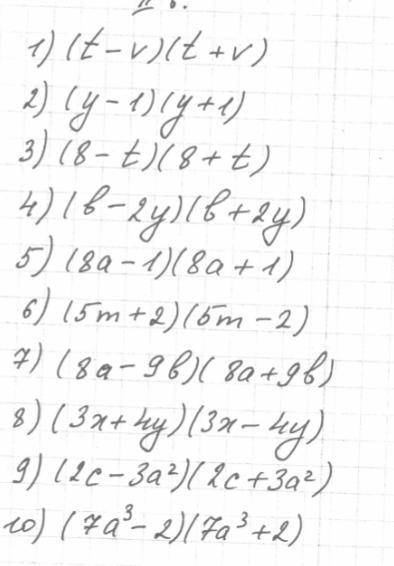 1) (t - v)(t + v)
2) (y - 1)(y + 1)
3) (8 - t)(8 + t)
4) (в - 2y)(в + 2y)
5) (8a - 1)(8a + 1)
6) (5m + 2)(5m - 2)
7) (8a - 9в)(8a + 9в)
8) (3x + 4y)(3x - 4y)
9) (2c - 3a²)(2c + 3a²)
10) (7a³ - 2)(7a³ + 2)